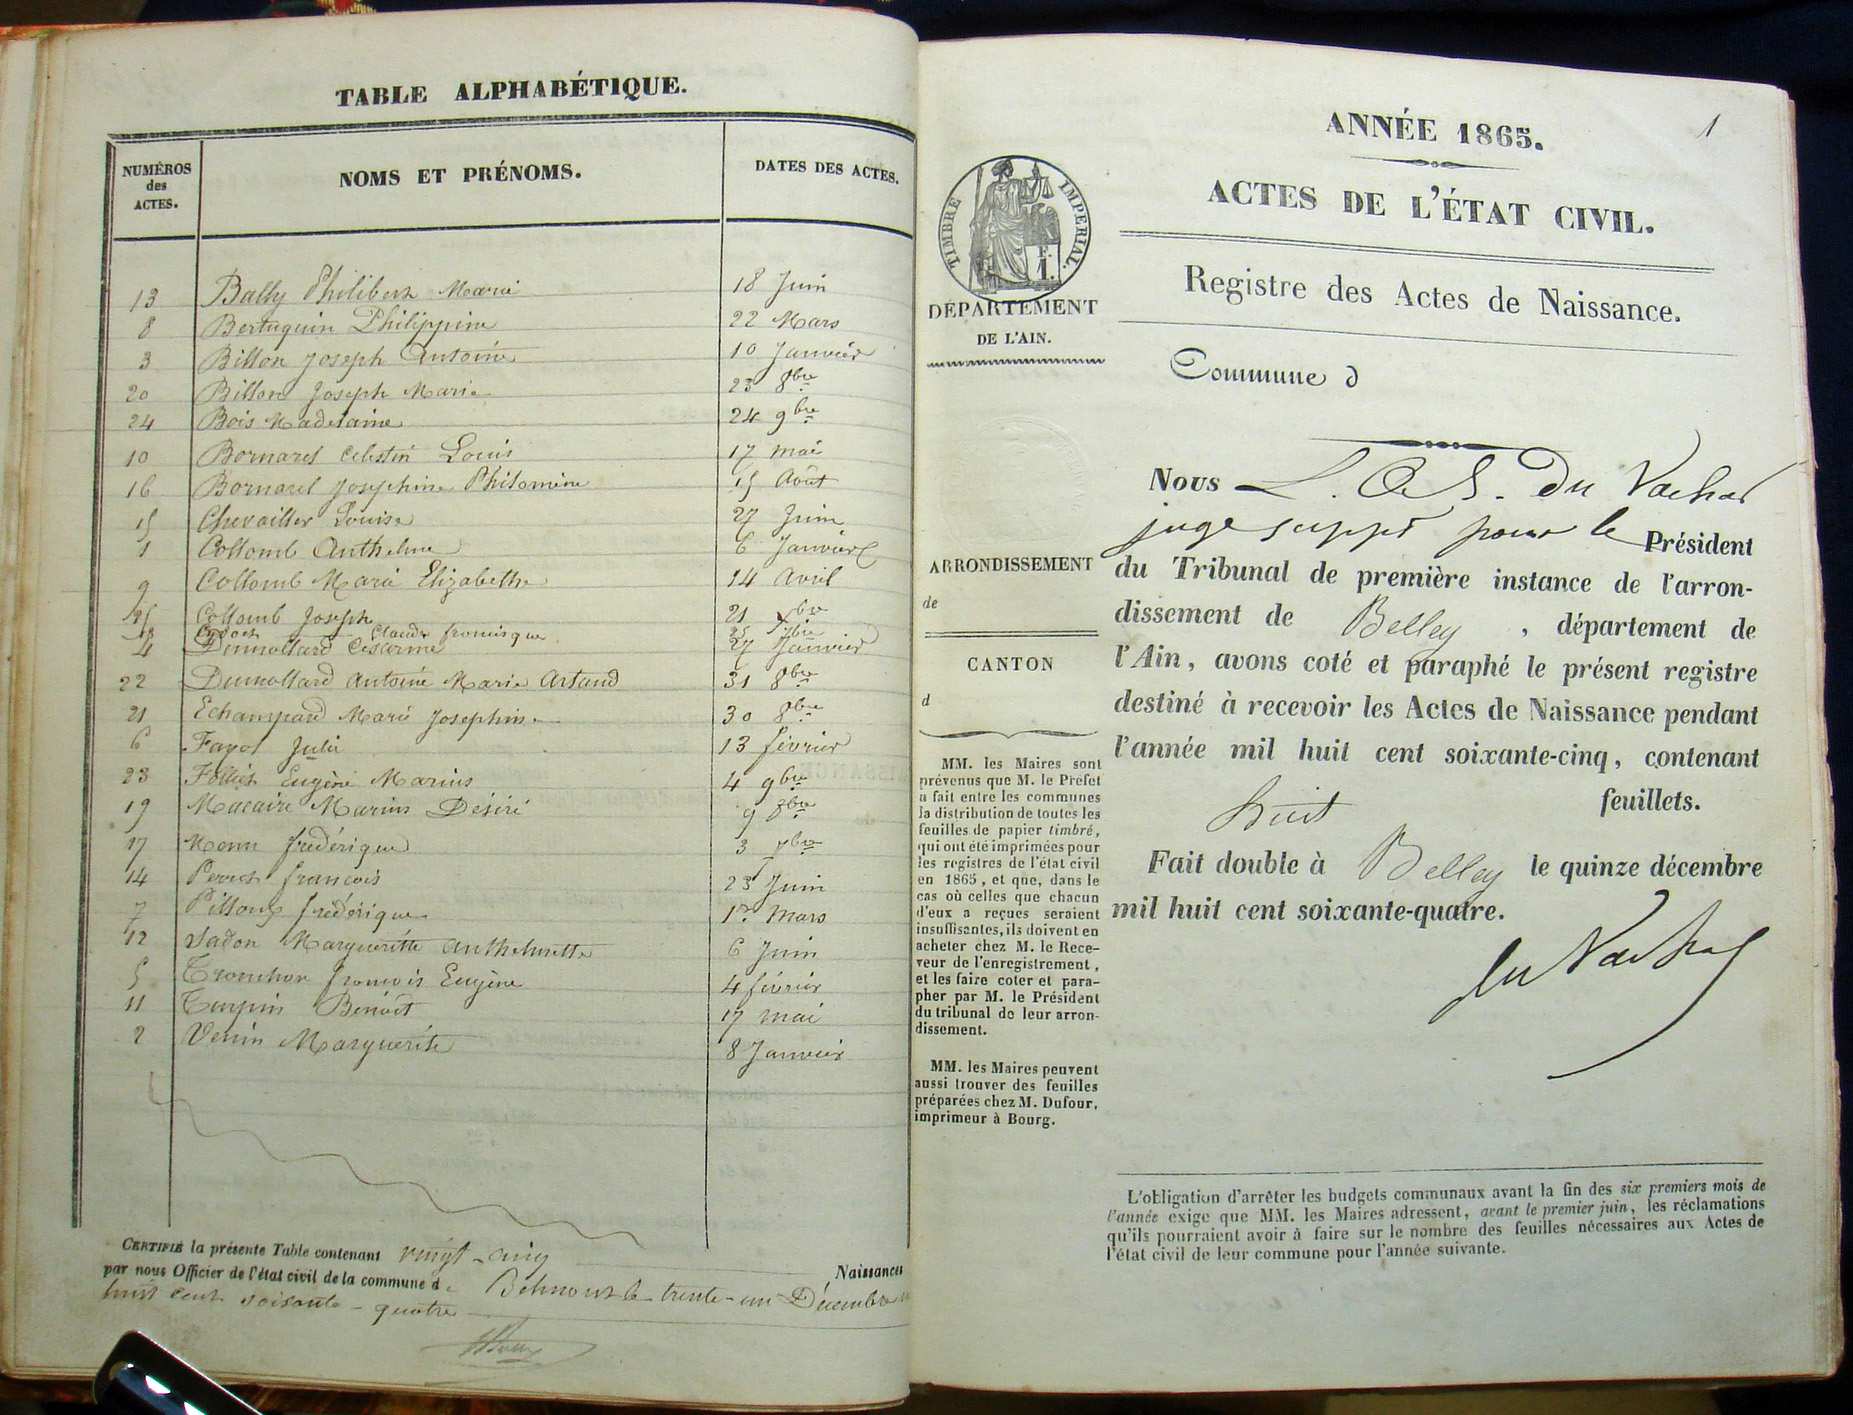 TABLE ALPHABÉTIQUE.
NUMÉROS des ACTES.
NOMS ET PRÉNOMS.
DATES DES ACTES.
13 Bally Philibert Marie 18 Juin
8 Bertuquin Philippine 22 Mars
3 Billon Joseph Antoine 10 Janvier
20 Billon Joseph Marie 23 8bre
24 Bois Madelaine 24 9bre
10 Bornarel Celestin Louis 17 mai
16 Bornarel Josephine Philomène 15 Août
15 Chevailler Louise 27 Juin
1 Collomb Anthelme 6 Janvier
9 Collomb Marie Elizabeth 14 Avril
25 Collomb Joseph 21
18 Claude françisque 25 7bre
4 Dumollard 27 Janvier
22 Dumollard Antoine Marie Artaud 31 8bre
21 Echampard Marie Josephine 30 8bre
6 Fayot Julie 13 février
23 Eugène Marius 4 9bre
19 Macaire Marius Désiré 9 8bre
17 frédérique 3 7bre
14 Perret françois 23 Juin
7 frédérique 1er Mars
12 Margueritte Anthelmette 6 Juin
5 Tronchon françois Eugène 4 février
11 Turpin Benoit 17 mai
2 Venin Marguerite 8 Janvier
CERTIFIÉ la présente Table contenant vingt-cinq Naissances
par nous Officier de l'état civil de la commune de Belmont le trente-un Décembre
huit cent soixante-quatre
1
ANNÉE 1865.
ACTES DE L'ÉTAT CIVIL.
Registre des Actes de Naissance.
Commune d
TIMBRE IMPERIAL.
DÉPARTEMENT
DE L'AIN.
ARRONDISSEMENT
de
CANTON
d
MM. les Maires sont
prévenus que M. le Préfet
a fait entre les communes
la distribution de toutes les
feuilles de papier timbré,
qui ont été imprimées pour
les registres de l'état civil
en 1865, et que, dans le
cas où celles que chacun
d'eux a reçues seraient
insuffisantes, ils doivent en
acheter chez M. le Rece-
veur de l'enregistrement,
et les faire coter et para-
pher par M. le Président
du tribunal de leur arron-
dissement.
MM. les Maires peuvent
aussi trouver des feuilles
préparées chez M. Dufour,
imprimeur à Bourg.
Nous Du Vachat
juge suppt pour le Président
du Tribunal de première instance de l'arron-
dissement de Belley, département de
l'Ain, avons coté et paraphé le présent registre
destiné à recevoir les Actes de Naissance pendant
l'année mil huit cent soixante-cinq, contenant
huit feuillets.
Fait double à Belley le quinze décembre
mil huit cent soixante-quatre.
du Vachat
L'obligation d'arrêter les budgets communaux avant la fin des six premiers mois de
l'année exige que MM. les Maires adressent, avant le premier juin, les réclamations
qu'ils pourraient avoir à faire sur le nombre des feuilles nécessaires aux Actes de
l'état civil de leur commune pour l'année suivante.